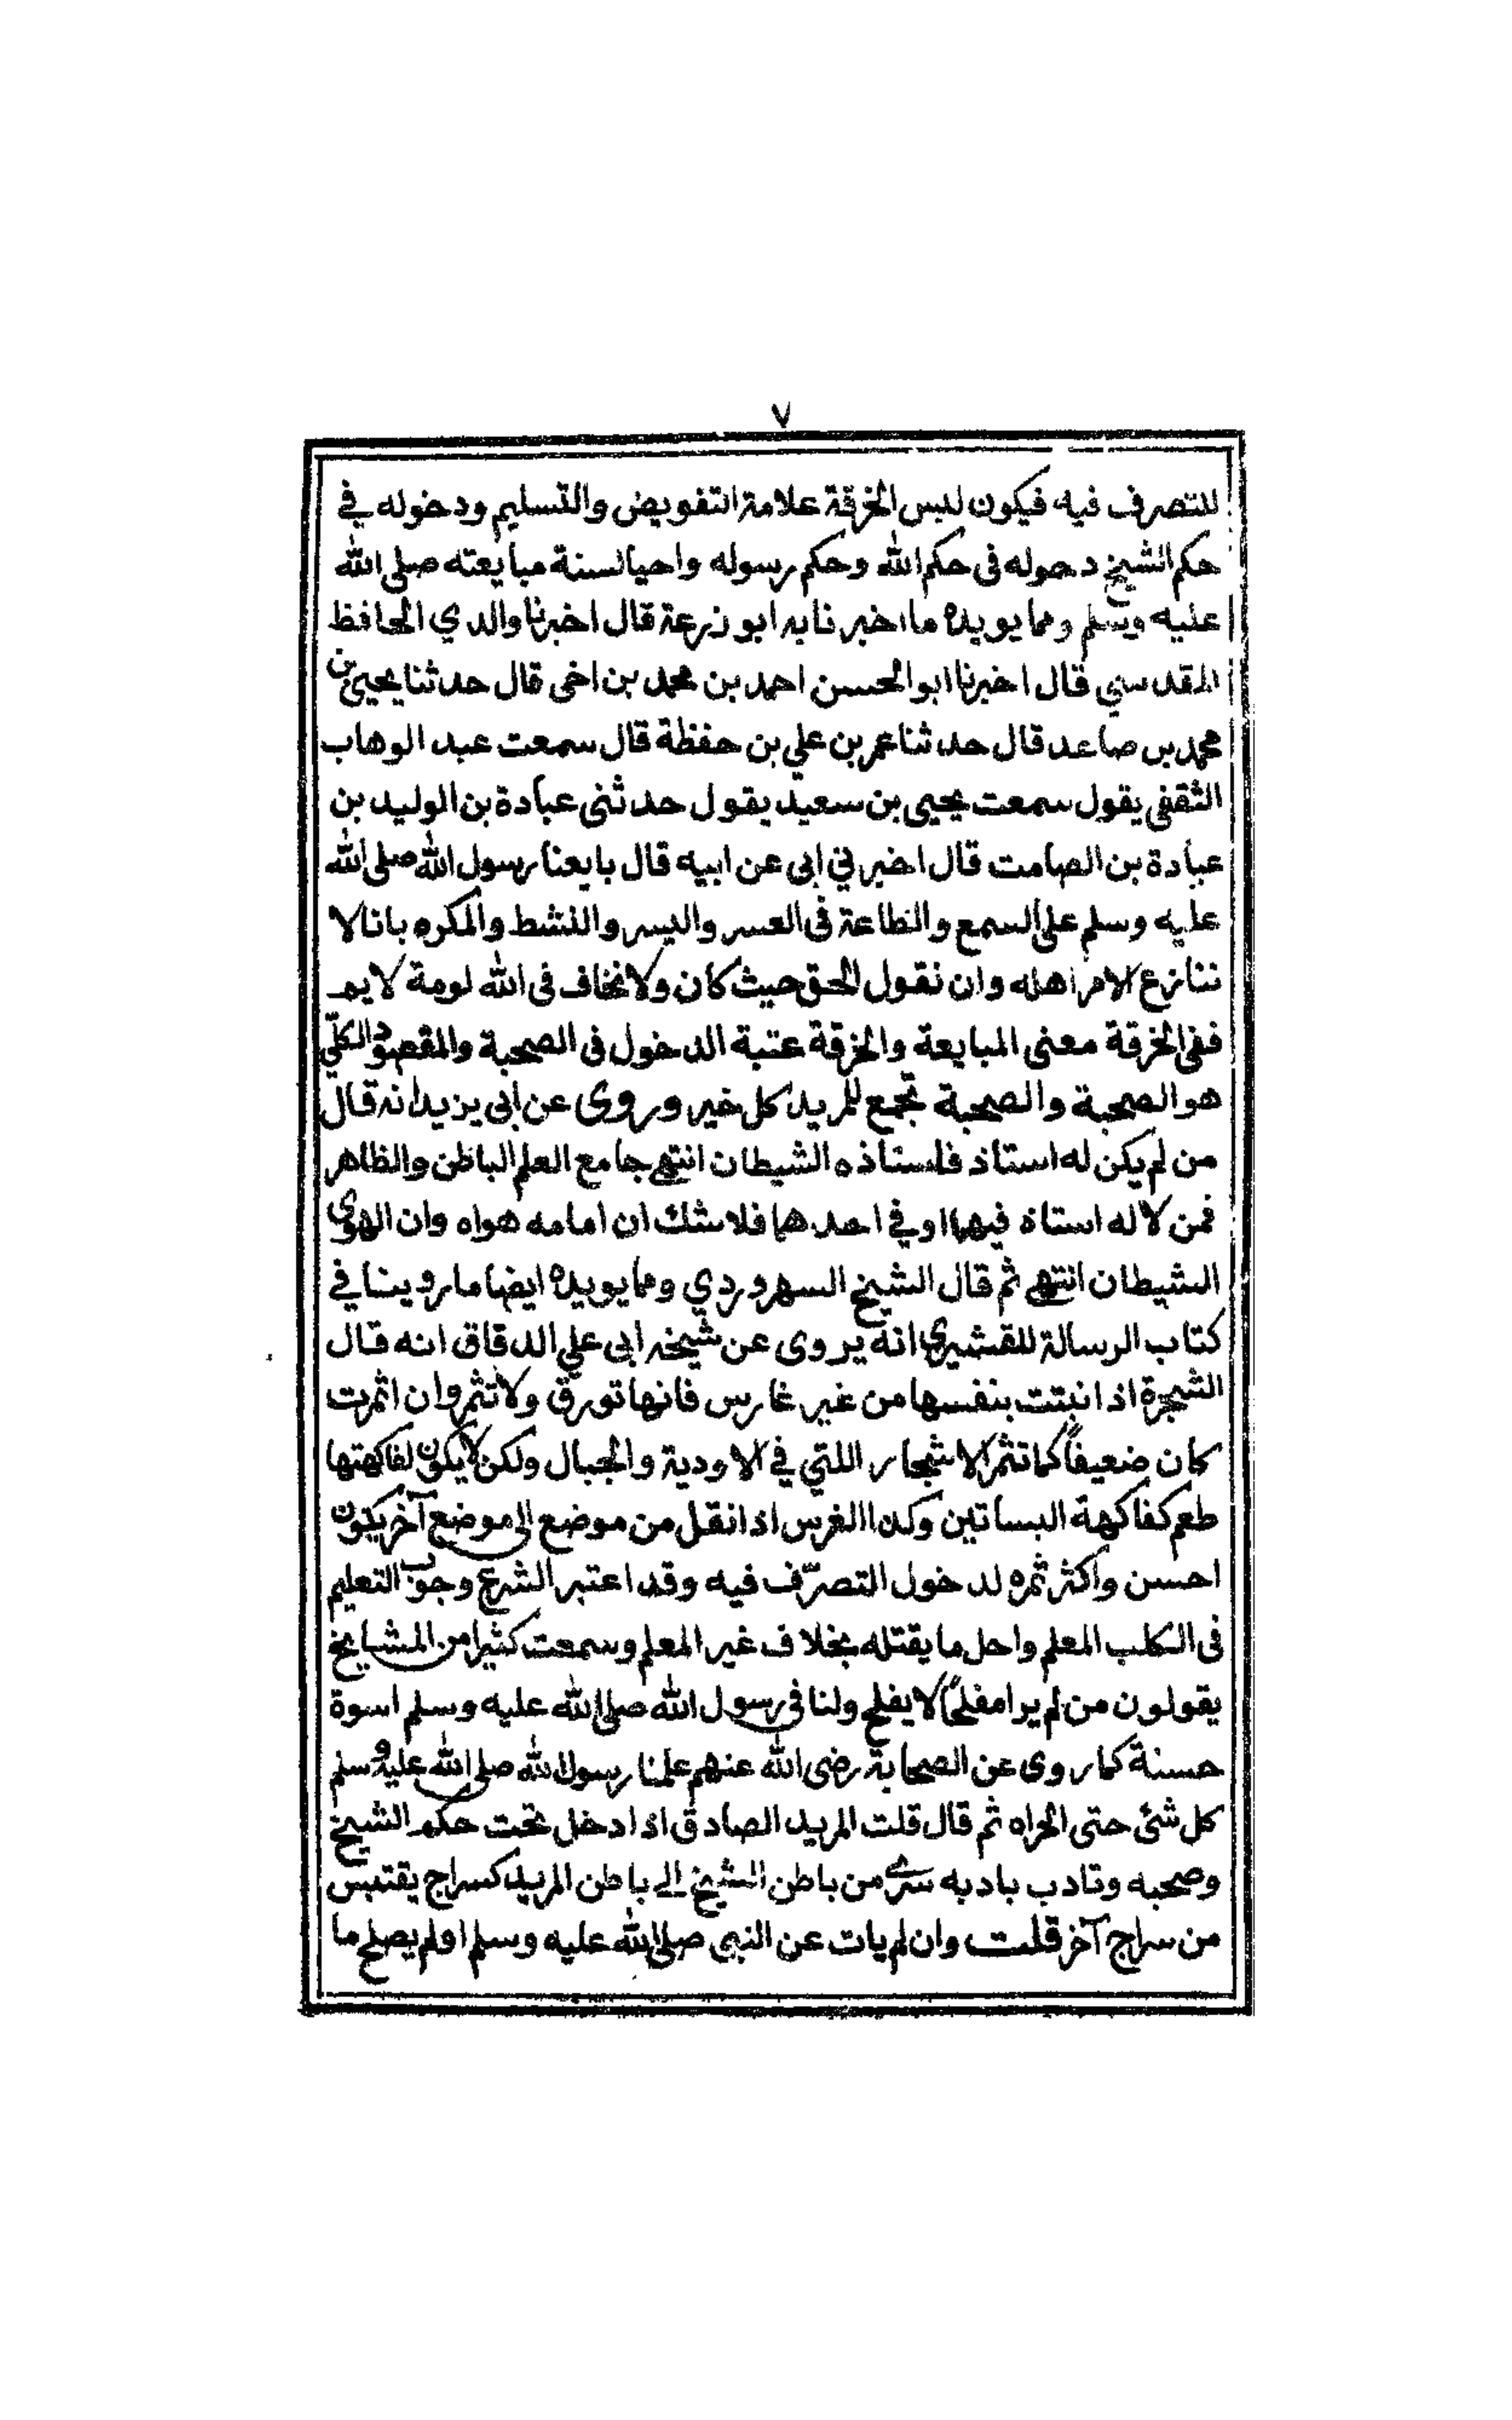 ٧
للتصرف فيه فيكون لبس الخرقة علامة التفويض والتسليم ودخوله في
حكم الشيخ دحوله فى حكم الله وحكم رسوله واحيا لسنة مبايعته صلى الله
عليه وسلم ومما يويده ما اخبرنا به ابو زرعة قال اخبرنا والدي الحافظ
المقدسي قال اخبرنا ابو الحسن احمد بن محمد بن اخى قال حدثنا يحيى بن
محمد بن صاعد قال حدثنا عمر بن علي بن حفظة قال سمعت عبد الوهاب
الثقفى يقول سمعت يحيى بن سعيد يقول حدثنى عبادة بن الوليد بن
عبادة بن الصامت قال اخبرني ابى عن ابيه قال بايعنا رسول الله صلى الله
عليه وسلم على السمع والطاعة فى العسر واليسر والنشط والمكره بانا لا
ننازع الامر اهله وان نقول الحق حيث كان ولا نخاف فى الله لومة لايم
ففى الخرقة معنى المبايعة والخرقة عتبة الدخول فى الصحبة والمقصود الكلّي
هو الصحبة والصحبة تجمع للمريد كل خير وروى عن ابى يزيد انه قال
من لم يكن له استاذ فاستاذه الشيطان انتهى جامع العلم الباطن والظاهر
فمن لا له استاذ فيهما او في احدهما فلا شك ان امامه هواه وان الهوى
الشيطان انتهى ثم قال الشيخ السهروردي ومما يويده ايضا ما روينا في
كتاب الرسالة للقشيرى انه يروى عن شيخه ابى علي الدقاق انه قال
الشجرة اذا نبتت بنفسها من غير غارس فانها تورق ولا تثمر وان اثمرت
كان ضعيفاً كما تثمر الاشجار اللتي في الاودية والجبال ولكن لا يكون لفاكهتها
طعم كفاكهة البساتين وكذا الغرس اذا نقل من موضع الى موضع آخر يكون
احسن واكثر ثمره لدخول التصرّف فيه وقد اعتبر الشرع وجوب التعليم
فى الكلب المعلم واحل ما يقتله بخلاف غير المعلم وسمعت كثيرا من المشايخ
يقولون من لم يرا مفلحاً لا يفلح ولنا فى رسول الله صلى الله عليه وسلم اسوة
حسنة كما روى عن الصحابة رضى الله عنهم علمنا رسول الله صلى الله عليه وسلم
كل شئ حتى الخراه ثم قال قلت المريد الصادق اذا دخل تحت حكم الشيخ
وصحبه وتادب بادبه سرى من باطن الشيخ الى باطن المريد كسراج يقتبس
من سراج آخر قلت وان لم يات عن النبى صلى الله عليه وسلم او لم يصلح ما